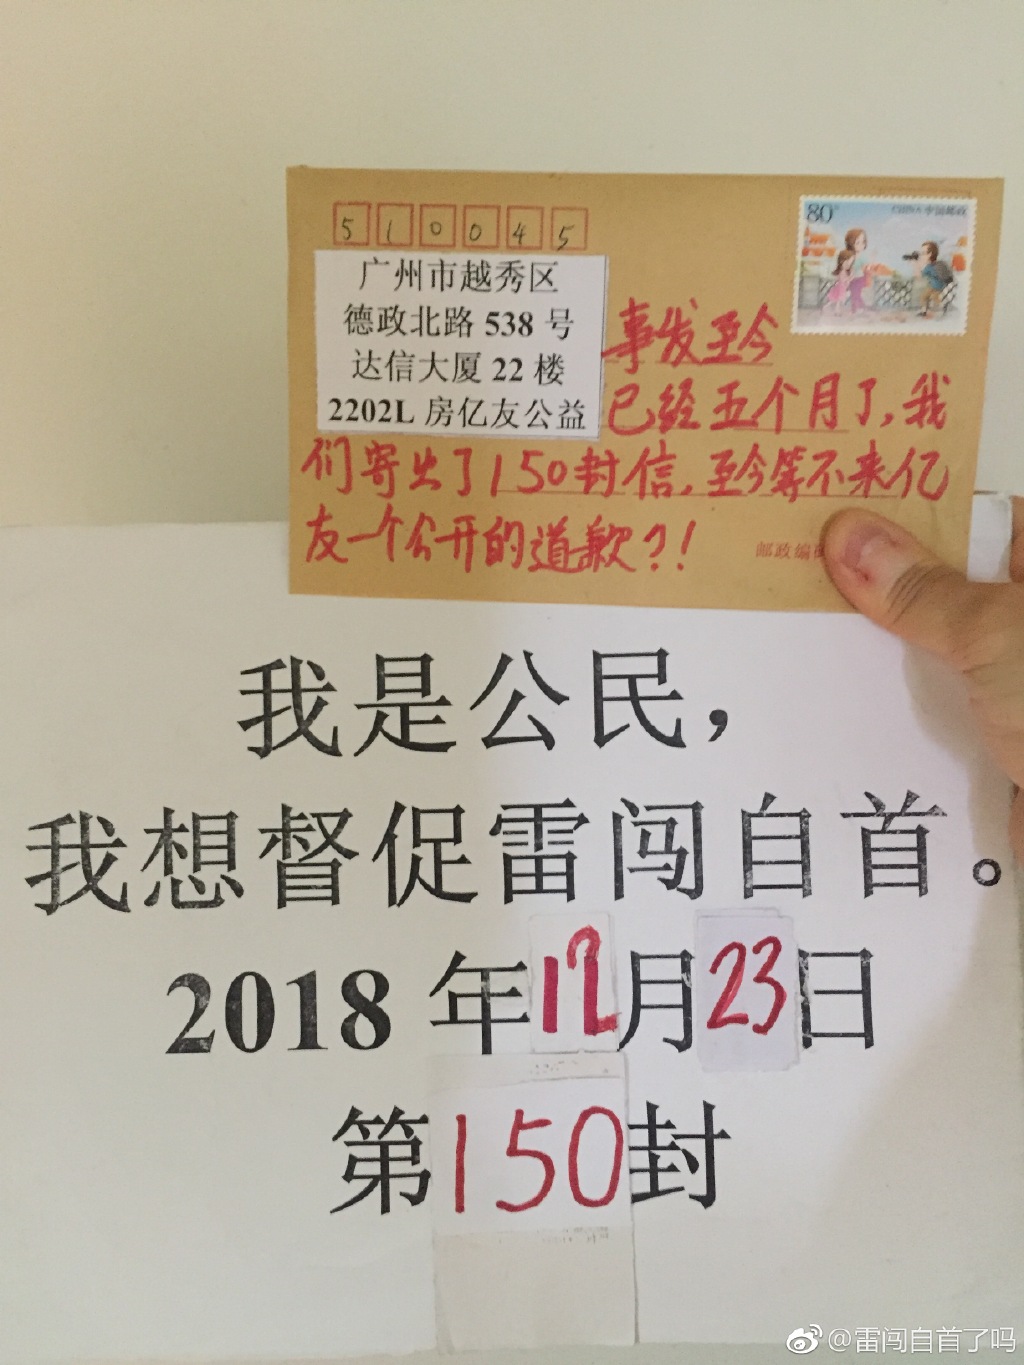 510045
80
中国邮政
广州市越秀区
德政北路 538 号
达信大厦 22 楼
2202L 房亿友公益
事发至今
已经五个月了,我
们寄出了150封信,至今等不来亿
友一个公开的道歉?!
邮政编
我是公民,
我想督促雷闯自首。
2018 年12月23日
第150封
@雷闯自首了吗